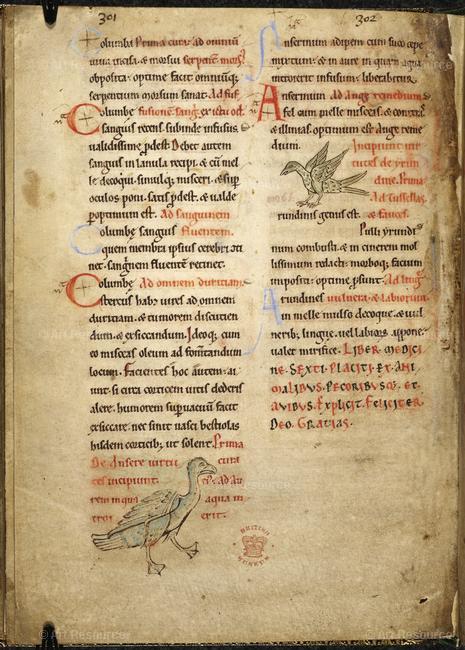 301
Columba Prima cura ad omniū
opposita optime facit omniūq;
serpentium morsum sanat. Ad suf
Columbę fusionē sang. ex ictu ocł.
sanguis recens subinde infusus
validissime pdest. Debet autem
sanguis in lanula recipi & cū mel
le decoqui simulq; misceri & sup
oculos poni. satis pdest & valde
pportunum est. Ad sanguinem
Columbę sanguis fluentem.
quem membri ipsius cerebri
net. sangnem fluentē retinet.
Columbę Ad omnem duritiam
stercus habz vires ad omnem
duritiam & tumorem discutien
dum & exsiccandum. Ideoq; cum
eo misceas oleum ad fomtandum
locum. Facientes hoc autem
unt si circa corticem vitis dederis
alere. humorem supuacuū facit
exsiccare. ne sinit nasci bestiolas
hisdem corticib; ut solent. Prima
De Ansere virtu cura
tes incipiunt. Ad au
rem in qua aqua in
troi erit.
302
Anserinum adipem cum suco cepe
mixtum & in aure in quam aqua
introierit infusum liberabitur.
Anserinum Ad ange remedium
fel cum melle misceis & contrita
& illinias. optimum est ange reme
dium. Incipiunt vir
tutes de yrun
dine. Prima
Ad tussellas
rundinis genus est. & fauces.
Pulli yrundi
num combusti & in cinerem mol
lissimum redacti. morboq; faucium
impositi optime psunt. Ad lingę
rundines vulnera & labiorum
in melle mulso decoque & vul
nerib; linguę. vel labiorum appone
valet mirifice. LIBER MEDICI
NE. SEXTI. PLACITI. EX. ANI
MALIBVS. PECORIBVSQ; ET
AVIBVS. EXPLICIT. FELICITER
DEO. GRATIAS.
BRITISH
MUSEUM
© Art Resource
© Art Resource